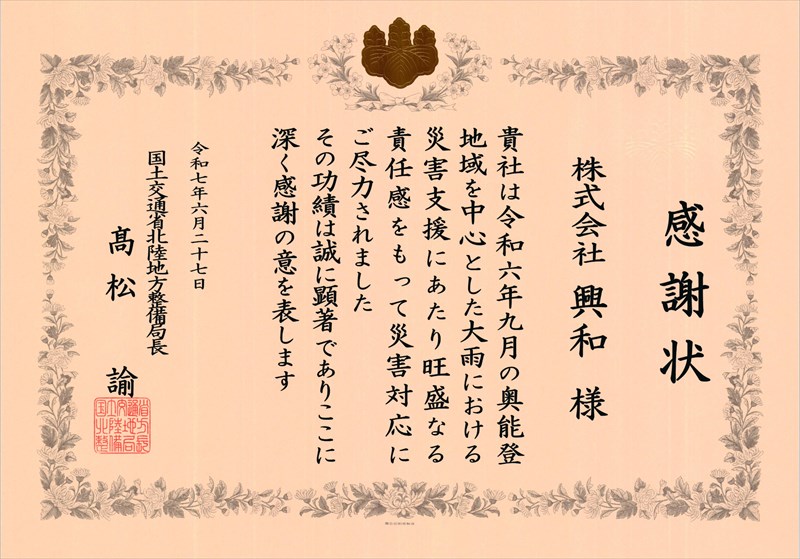 感謝状
株式会社 興和 様
貴社は令和六年九月の奥能登
地域を中心とした大雨における
災害支援にあたり旺盛なる
責任感をもって災害対応に
ご尽力されました
その功績は誠に顕著でありここに
深く感謝の意を表します
令和七年六月二十七日
国土交通省北陸地方整備局長
髙松 諭